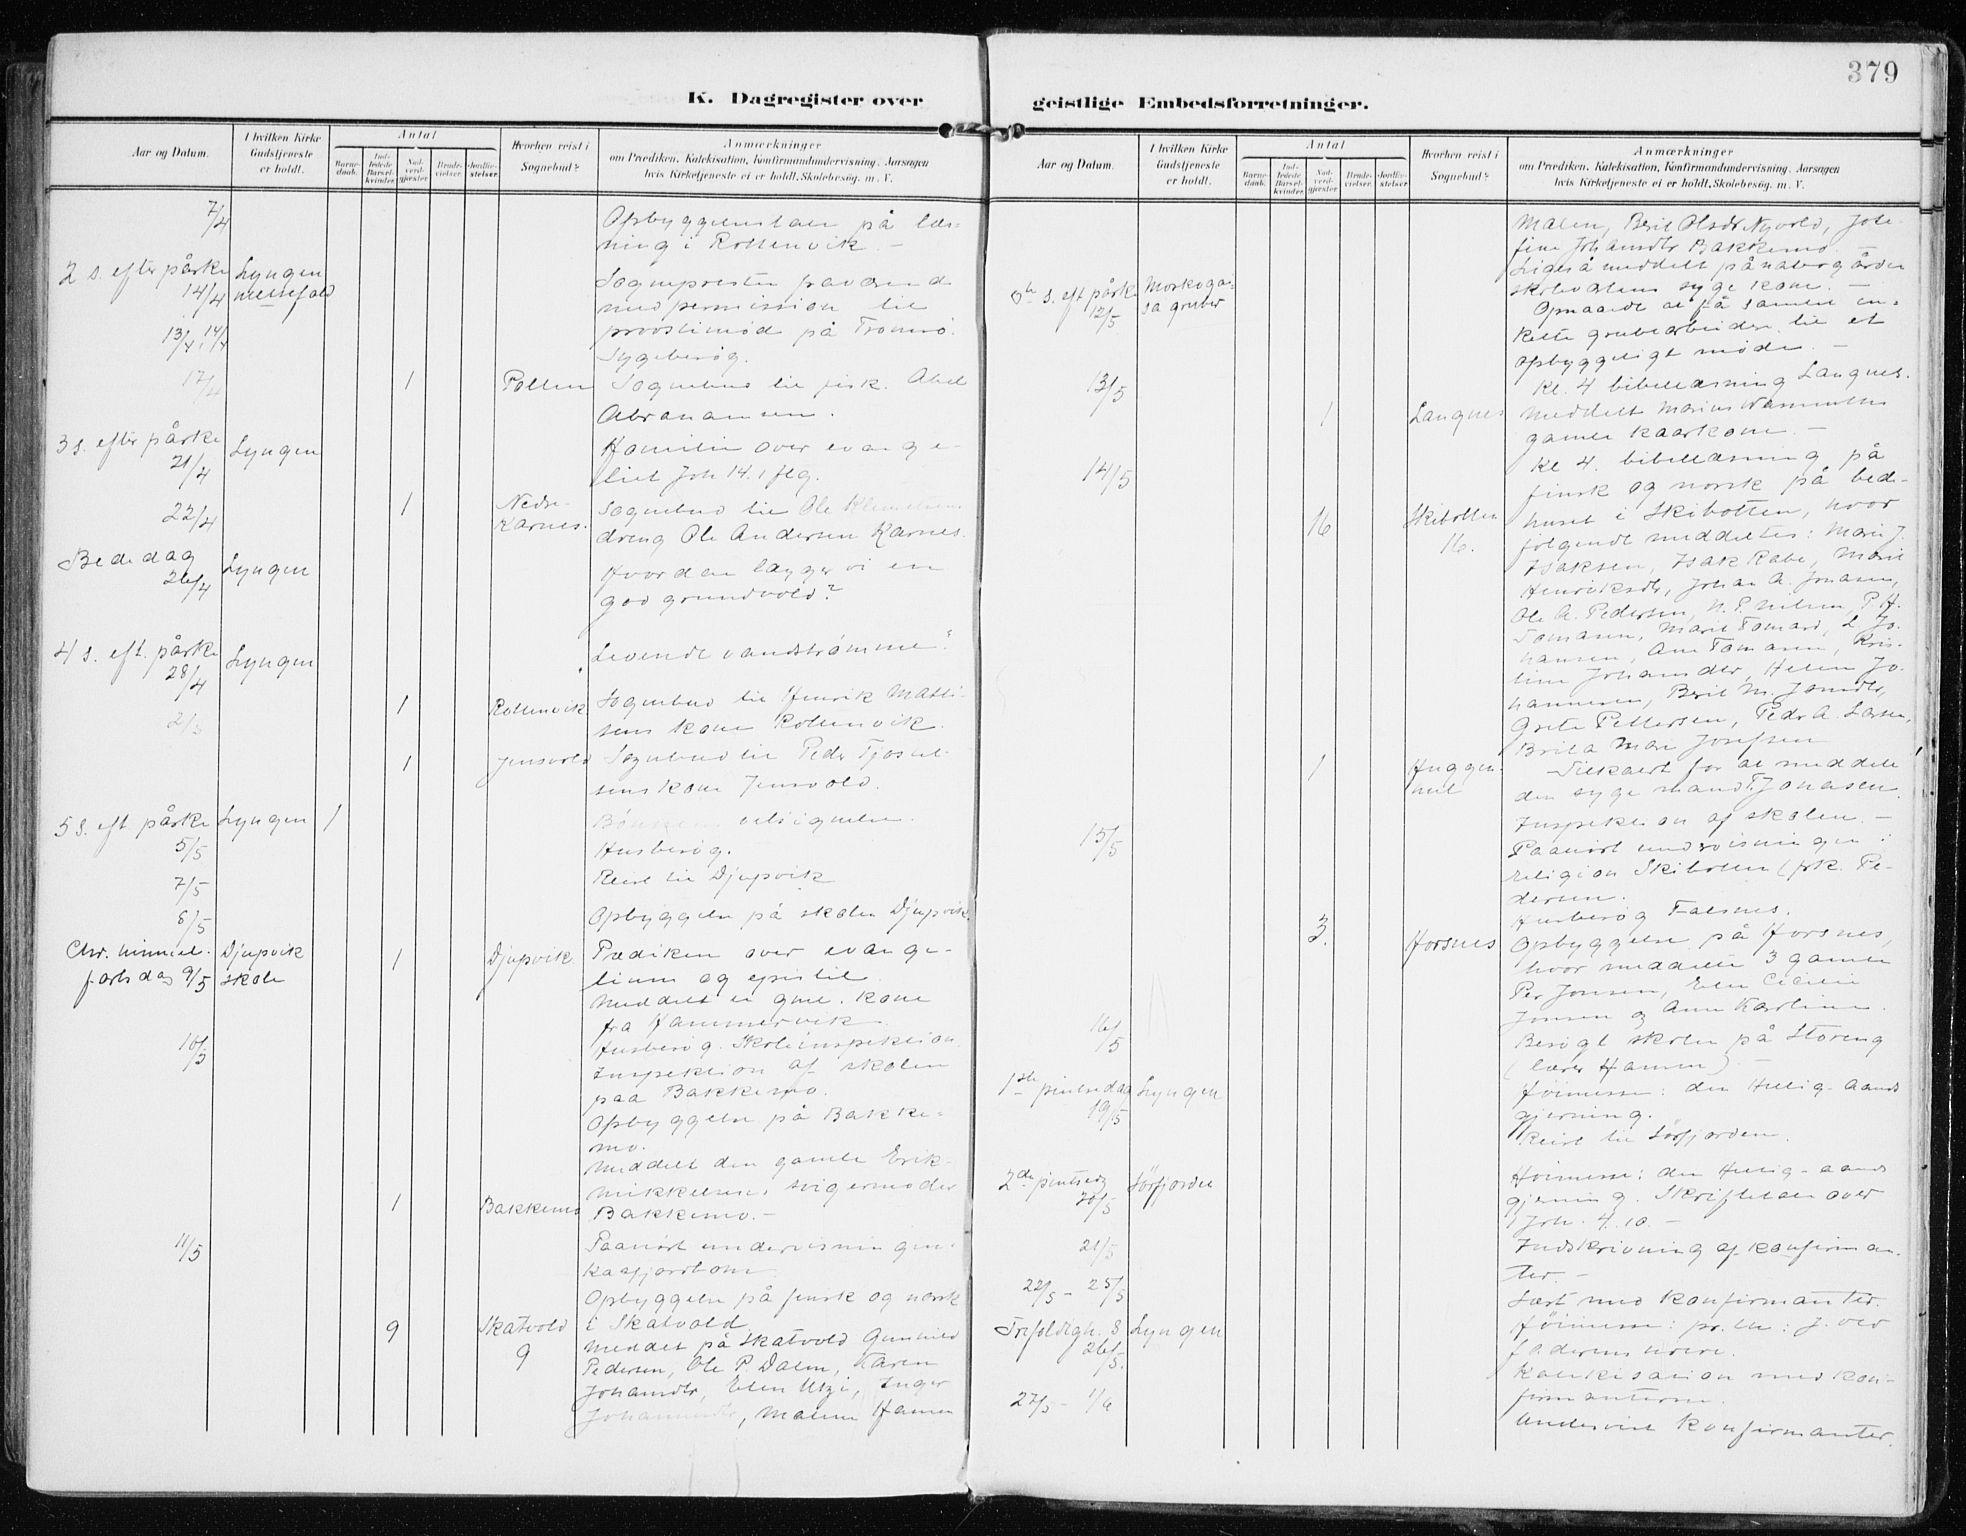 379
K. Dagregister over geistlige Embedsforretninger.
Aar og Datum.
I hvilken Kirke Gudstjeneste er holdt.
Antal
Barnedaab.
Indledede Barselkvinder.
Nadverdgjester
Brudevielser.
Jordfæstelser.
Hvorhen reist i Sognebud?
Anmærkninger
om Prædiken, Katekisation, Konfirmandundervisning, Aarsagen
hvis Kirketjeneste ei er holdt, Skolebesøg. m. V.
7/4 Opbyggelsestale på læs-
ning i Rottenvik. -
2 s. efter påske Lyngen Sognepresten fraværende
14/4 messefald med permission til
13/4, 14/4 provstimød på Tromsø.
Sygebesøg.
17/4 1 Pollen Sognebud til fisk. Abel
Abrahamsen.
3 s. efter påske Lyngen Homilie over evange-
21/4 liet Joh 14.1 flg.
22/4 1 Nedre- Sognebud til Ole
Karnes. dreng Ole Andersen Karnes.
Bededag Lyngen Hvordan lægger vi en
26/4 god grundvold?
4 s. eft. påske Lyngen Levende vandstrømme?
28/4
1 Rottenvik Sognebud til Henrik Matti-
sens kone Rottenvik.
1 Jensvold Sognebud til Peder
sens kone Jensvold.
5 s. eft påske Lyngen 1 velsignelse.
5/5 Husbesøg.
7/5 Reist til Djupvik
8/5 Opbyggelse på skolen Djupvik.
Chr. himmel- Djupvik 1 Djupvik Prædiken over evange-
fartsdag 9/5 skole lium og epistel.
Meddelt ei gml. kone
fra Hammervik.
10/5 Husbesøg. Skoleinspektion
Inspektion af skolen
paa Bakkemo.
Opbyggelse på Bakke-
mo.
Meddelt den gamle Erik
Mikkelsens svigermoder
1 Bakkemo Bakkemo. -
11/5 Paahørt undervisningen
Kaafjordbotn.
Opbyggelse på finsk og norsk
9 Skatvold i Skatvold
9 Meddelt på Skatvold Gunhild
Pedersen, Ole P. Dalen, Karen
Johansdtr, Elen Utzi, Inger
, Malene Hansen
Aar og Datum.
I hvilken Kirke Gudstjeneste er holdt.
Antal
Barnedaab.
Indledede Barselkvinder.
Nadverdgjester
Brudevielser.
Jordfæstelser.
Hvorhen reist i Sognebud?
Anmærkninger
om Prædiken, Katekisation, Konfirmandundervisning, Aarsagen
hvis Kirketjeneste ei er holdt, Skolebesøg. m. V.
Malen, Berit Olsdtr Nyvold, Jose-
fine Johansdtr Bakkemo. -
Ligeså meddelt på nabogården
syge kone. -
6te s. eft påske Moskogai- Opnaaede at få samlet en-
12/5 sa gruber kelte grubearbeidere til et
opbyggeligt møde. -
13/5 Kl. 4 bibellæsning Langnes.
1 Langnes Meddelt Marius
gamle kaarkone. -
14/5 Kl 4. bibellæsning på
finsk og norsk på bed-
16 Skibotten huset i Skibotten, hvor
16. følgende meddeltes: Marie J.
Isaksen, Isak Rabe, Marie
Henriksdtr, Johan A. Johansen,
Ole A. Pedersen, N. P. Nilsen, P. H.
Tomasen, Marit Tomasd, L Jo-
hansen, Ane Tomasen, Kris-
tine Johansdtr, Helen Jo-
hannesen, Berit M. Jonsdtr,
Grete Pettersen, Peder A. Larsen,
Brita Mari Josefsen
1 Huggen- -Tilkaldt for at meddele
den syge mand T. Jonasen.
15/5 Inspektion af skolen. -
Paahørt undervisningen i
religion Skibotten (frk. Pe-
dersen.
Husbesøg Falsnes.
3. Horsnes Opbyggelse på Horsnes,
hvor meddelte 3 gamle
Per Jonsen, Elen Cicilie
Jonsen og Anne Karoline.
16/5 Besøgt skolen på Storeng
(lærer Hansen)
1ste pintsedag Lyngen Høimesse: den Hellig-aands
19/5 gjerning.
Reist til Sørfjorden.
2den pintsedg Sørfjorden Høimesse: den Hellig-aands
20/5 gjerning. Skriftetale over
Joh. 4.10. -
21/5 Indskrivning af konfirman-
ter. -
22/5 - 25/5 Læst med konfirmanter.
Trefoldigh. S Lyngen Høimesse: pr. th: J. ved
26/5. faderens
Katekisation med kon-
firmanterne.
27/5 - 1/6 Undervist konfirmanter.